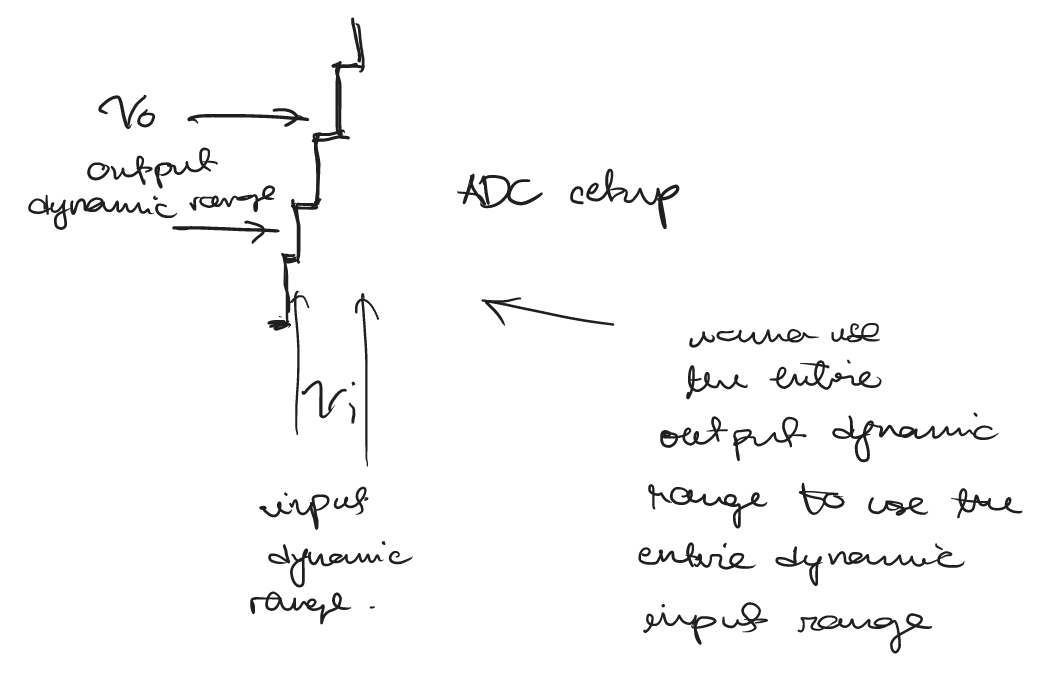 Vo
output
dynamic range
ADC setup
Vi
input
dynamic
range.
wanna use
the entire
output dynamic
range to use the
entire dynamic
input range